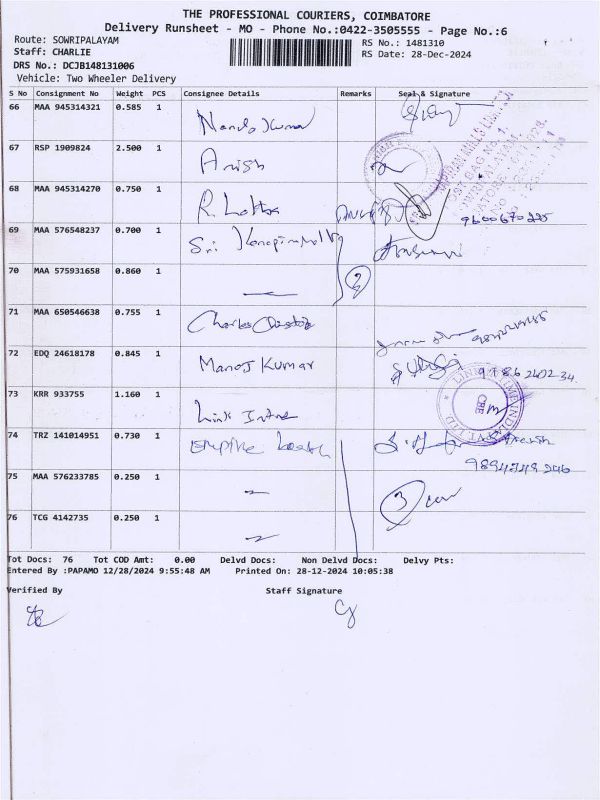 THE PROFESSIONAL COURIERS, COIMBATORE
Delivery Runsheet - MO - Phone No.:0422-3505555 - Page No.:6
Route: SOWRIPALAYAM
RS No.: 1481310
Staff: CHARLIE
RS Date: 28-Dec-2024
DRS No.: DCJB148131006
Vehicle: Two Wheeler Delivery
S No Consignment No Weight PCS Consignee Details Remarks Seal & Signature
66 MAA 945314321 0.585 1 Nanda Kumar
67 RSP 1909824 2.500 1 Anish
68 MAA 945314270 0.750 1 R. Latha
69 MAA 576548237 0.700 1 Sri
70 MAA 575931658 0.860 1
71 MAA 650546638 0.755 1 Charles
72 EDQ 24618178 0.845 1 Manoj Kumar
73 KRR 933755 1.160 1 Link
74 TRZ 141014951 0.730 1 Empire
75 MAA 576233785 0.250 1 3
76 TCG 4142735 0.250 1
Tot Docs: 76 Tot COD Amt: 0.00 Delvd Docs: Non Delvd Docs: Delvy Pts:
Entered By :PAPAMO 12/28/2024 9:55:48 AM Printed On: 28-12-2024 10:05:38
Verified By Staff Signature